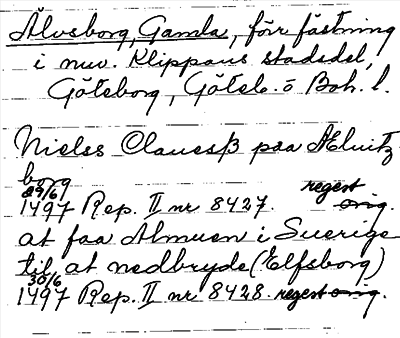 Älvsborg, Gamla, förr fästning
i nuv. Klippans stadsdel,
Göteborg, Göteb. o Boh. l.
Nielss Clauesß paa Ælvitz
borg
29/6 regest
1497 Rep. II nr 8427. orig.
at faa Almuen i Suerige
til at nedbryde (Elfsborg)
30/6
1497 Rep. II nr 8428. regest orig.